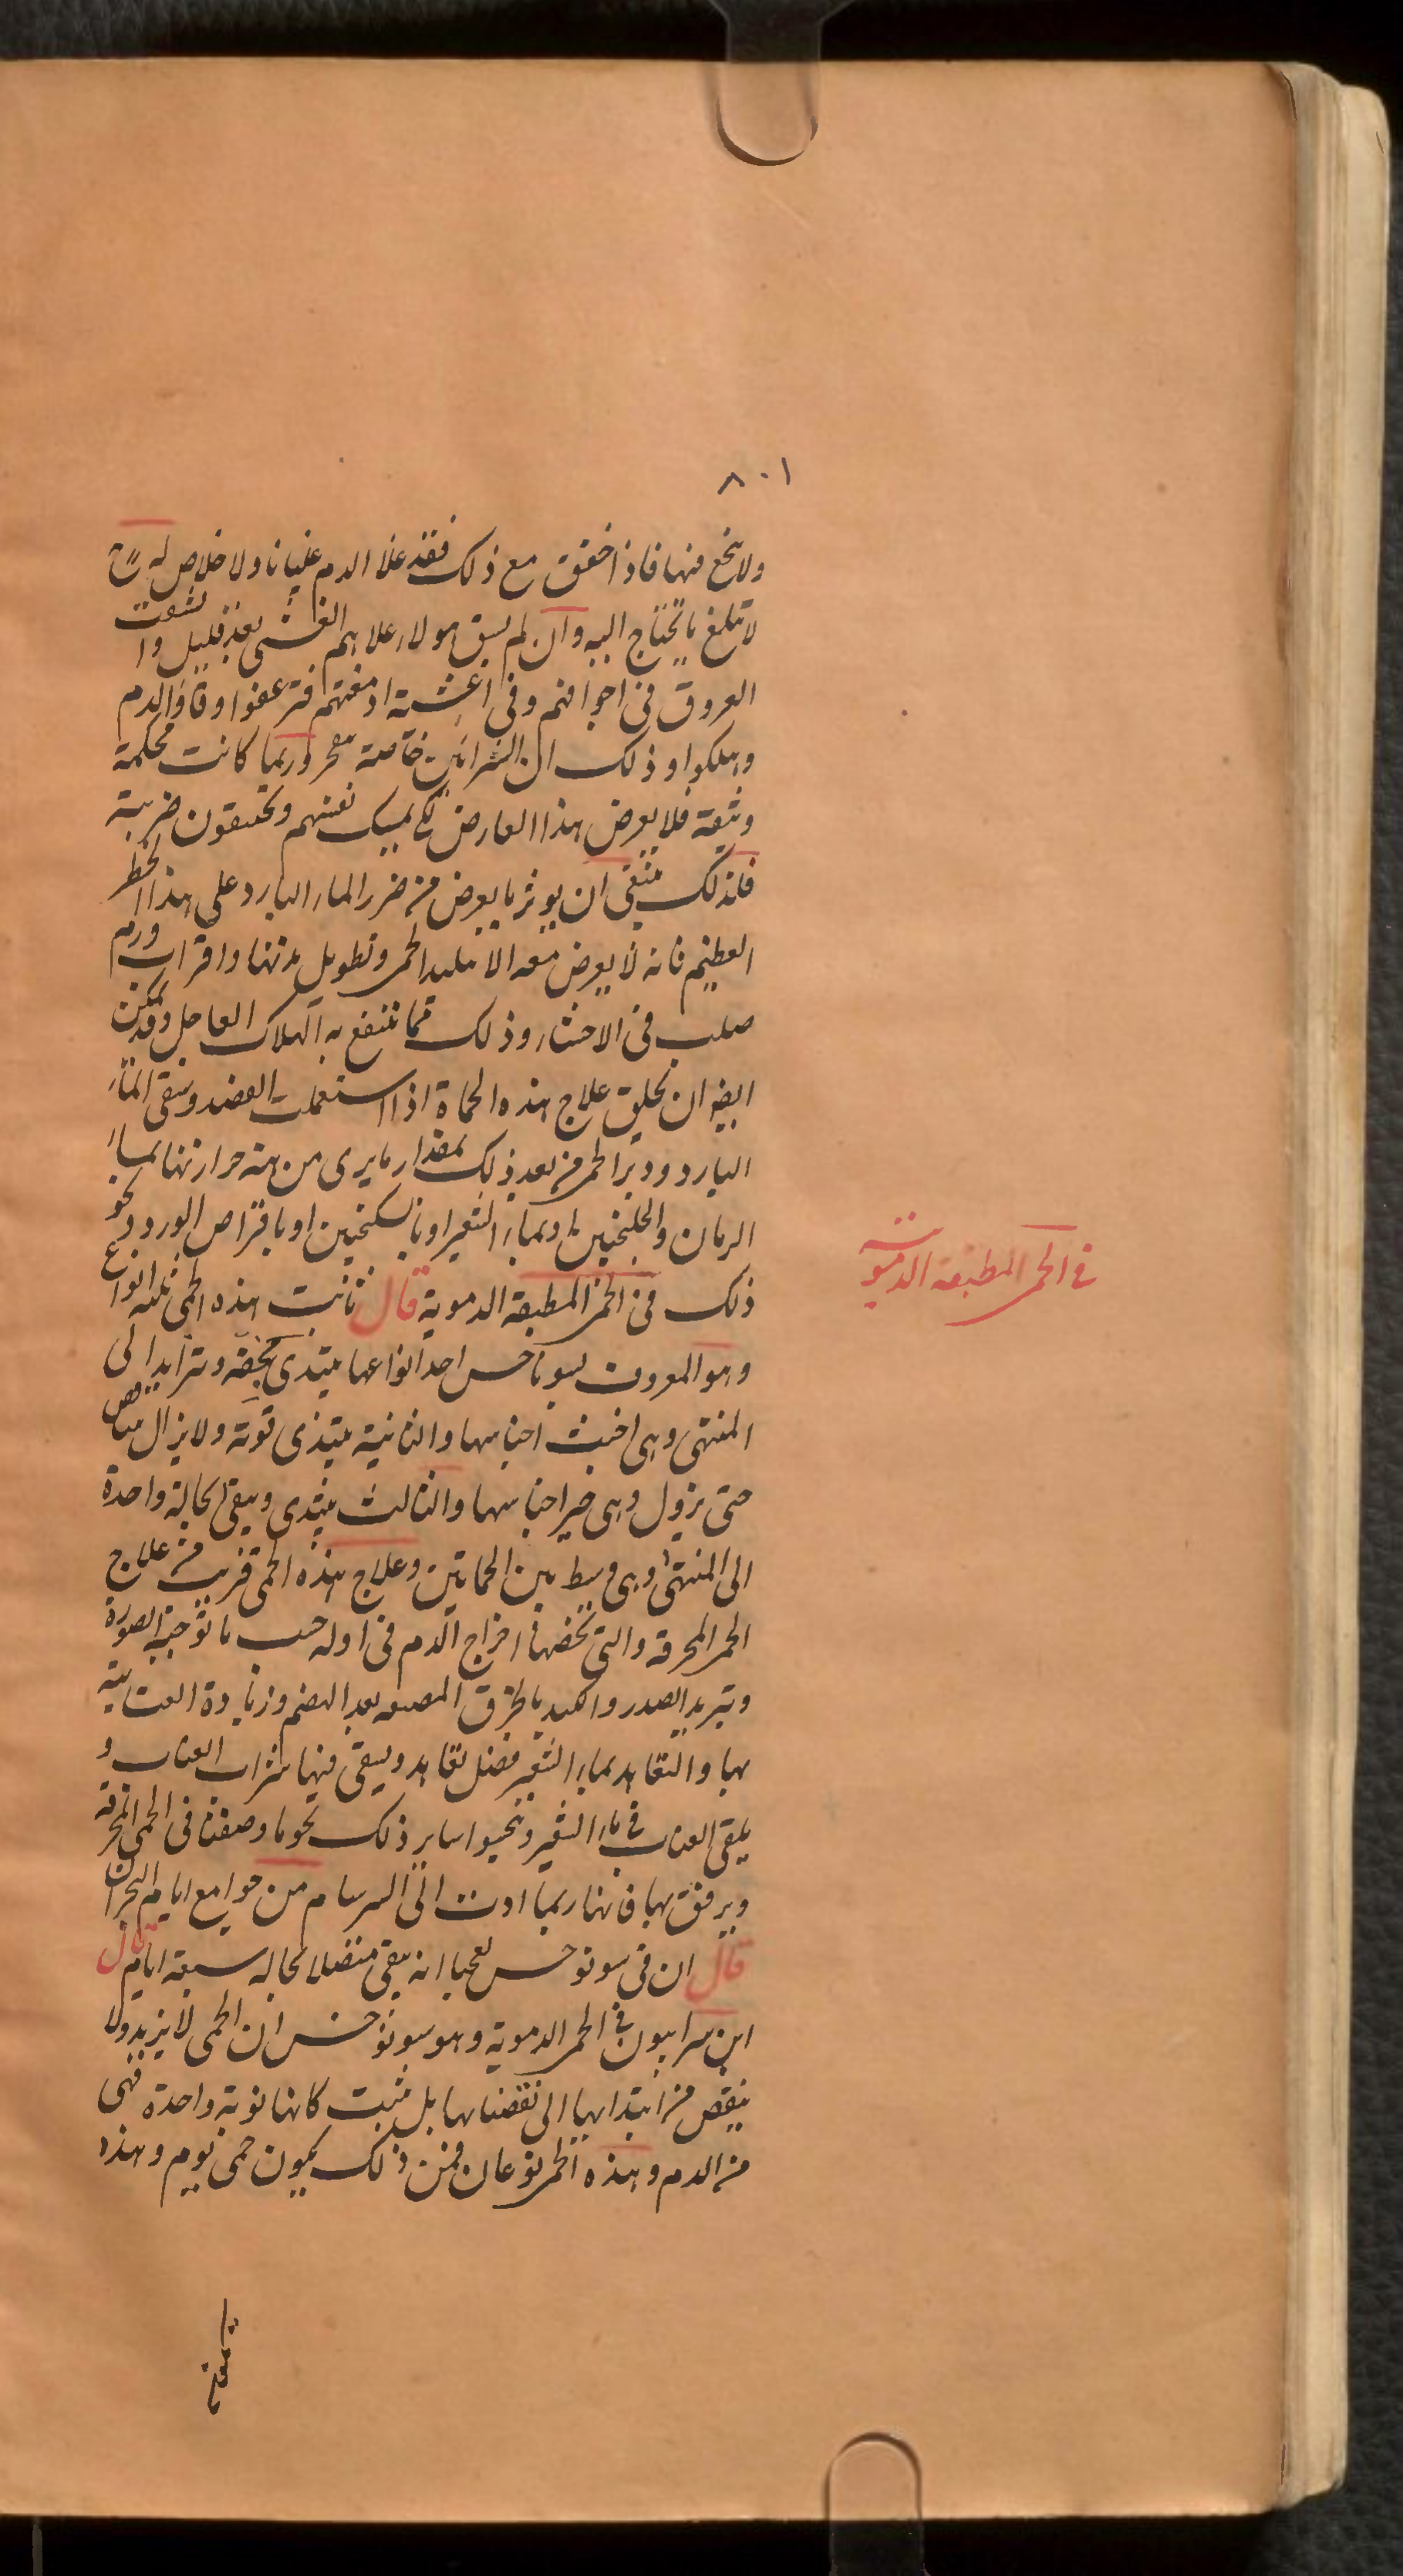 ٨٠١
ولا ينجع فيها فاذا خفق مع ذلك فقد غلا الدم غليانا ولا خلاص له
لا تبلغ ما تحتاج اليه وان لم يسق هولاء علاهم الغشى بعد قليل وانشقت
العروق فى اجوافهم وفى اغشية ادمغتهم فترعفوا وقاؤا الدم
وهلكوا وذلك ان الشرائين خاصة وربما كانت محكمة
وثيقة فلا يعرض هذا العارض نفسهم ويختنقون ضربة
فلذلك ينبغى ان يوثر ما يعرض من ضرر الماء البارد على هذا الخطر
العظيم فانه لا يعرض معه الا تبليد الحمى وتطويل مدتها واقراب ورم
صلب فى الاحشاء وذلك مما ينتفع به الهلاك العاجل وقد يمكن
ايضا ان يخلق علاج هذه الحماة اذا استعملت الفصد وسقى الماء
البارد ودبر الحمى من بعد ذلك بمقدار ما يرى من حرارتها بماء
الرمان والجلنجبين او بماء الشعير او بالسكنجبين او باقراص الورد ونحو
ذلك فى الحمى المطبقة الدموية قال ثابت هذه الحمى ثلثه انواع
فى الحمى المطبقة الدموية
وهو المعروف بسوناخس احد انواعها يبتدى بخفة وتتزايد الى
المنتهى وهى اخبث اجناسها والثانية يبتدى قوته ولا يزال يتناقص
حتى يزول وهى خير اجناسها والثالث يبتدى ويبقى بحالة واحدة
الى المنتهى وهى وسط بين الحماتين وعلاج هذه الحمى قريب من علاج
الحمى المحرقة والتى تخصها اخراج الدم فى اوله حسب ما توجبه الصورة
وتبريد الصدر والكبد بالخرق بعد الهضم وزيادة العناية
بها والتعاهد بماء الشعير فضل تعاهد ويسقى فيها شراب العناب و
يلقى العناب فى ماء الشعير سائر ذلك نحو ما وصفنا فى الحمى المحرقة
ويرفق بها فانها ربما ادت الى السرسام من جوامع ايام البحران
قال ان فى سونوخس انه يبقى متصلا بحاله سبعة ايام قال
ابن سرابيون فى الحمى الدموية وهو سونوخس ان الحمى لا يزيد ولا
ينقص من ابتدائها الى نقضانها بل يثبت كانها نوبة واحدة فهى
من الدم وهذه الحمى نوعان فمن ذلك يكون حمى يوم وهذه